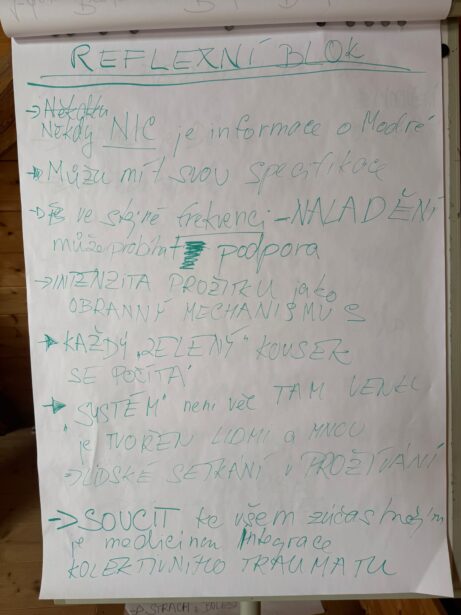 REFLEXNÍ BLOK
→ Někdy NIC je informace o Modré
→ Můžu mít svou specifikace
→ ve stejné frekvenci - NALADĚNÍ
může probíhat podpora
→ INTENZITA PROŽITKU jako
OBRANNÝ MECHANISMUS
→ KAŽDÝ „ZELENÝ" KOUSEK
SE POČÍTÁ
→ „SYSTÉM" není věc TAM VENKU
je TVOŘEN LIDMI a MNOU
→ LIDSKÉ SETKÁNÍ v PROŽÍVÁNÍ
→ SOUCIT ke všem zúčastněným
je medicínou integrace
KOLEKTIVNÍHO TRAUMATU
STRACH